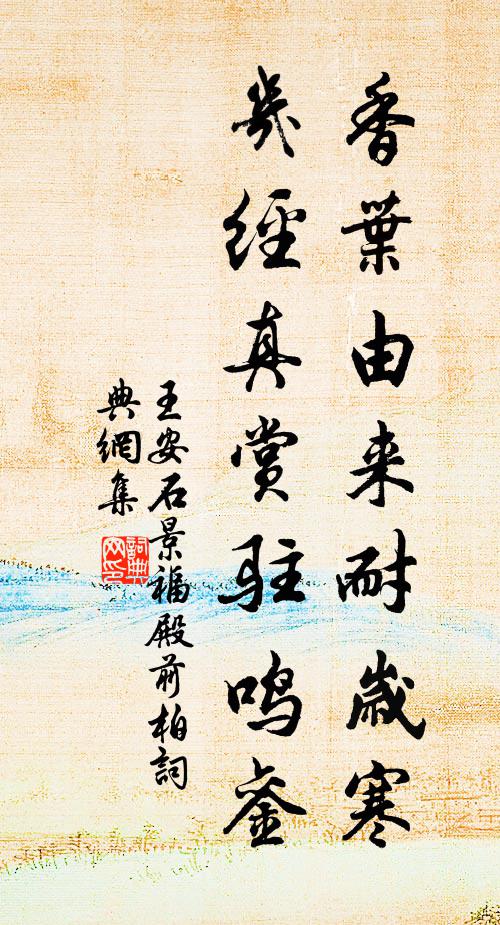 香葉由来耐歲寒
幾經真賞駐鸣銮
王安石景福殿前柏詞
典網集
詞典
网印